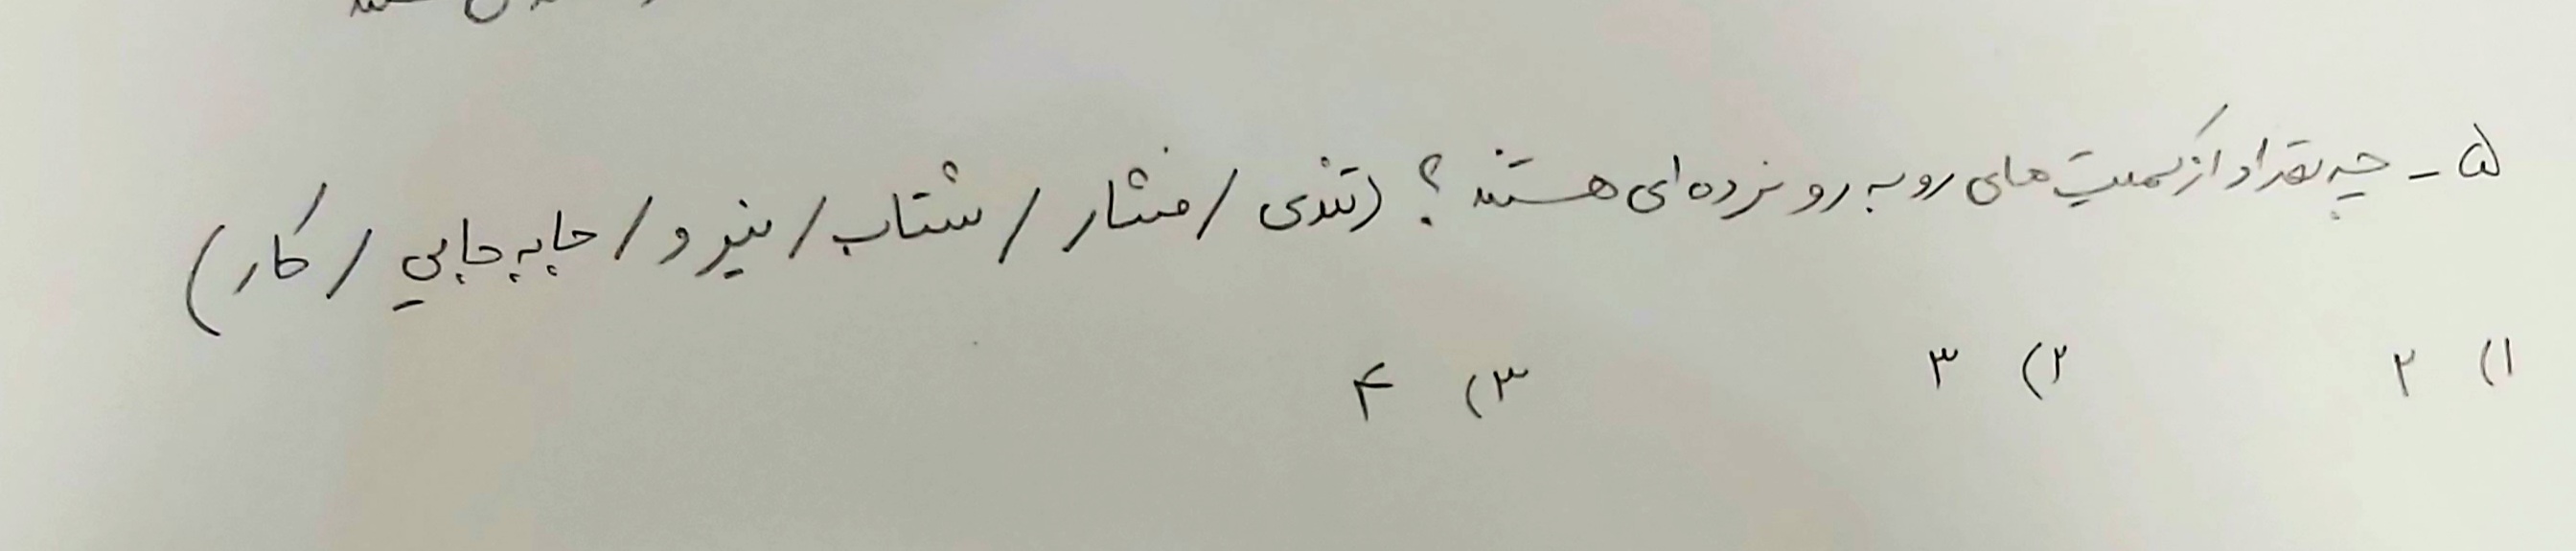 ۵ - چه تعداد از کمیت های رو به رو نرده ای هستند ؟ (تندی / فشار / شتاب / نیرو / جابه جایی / کار)
۱) ۲ ۲) ۳ ۳) ۴